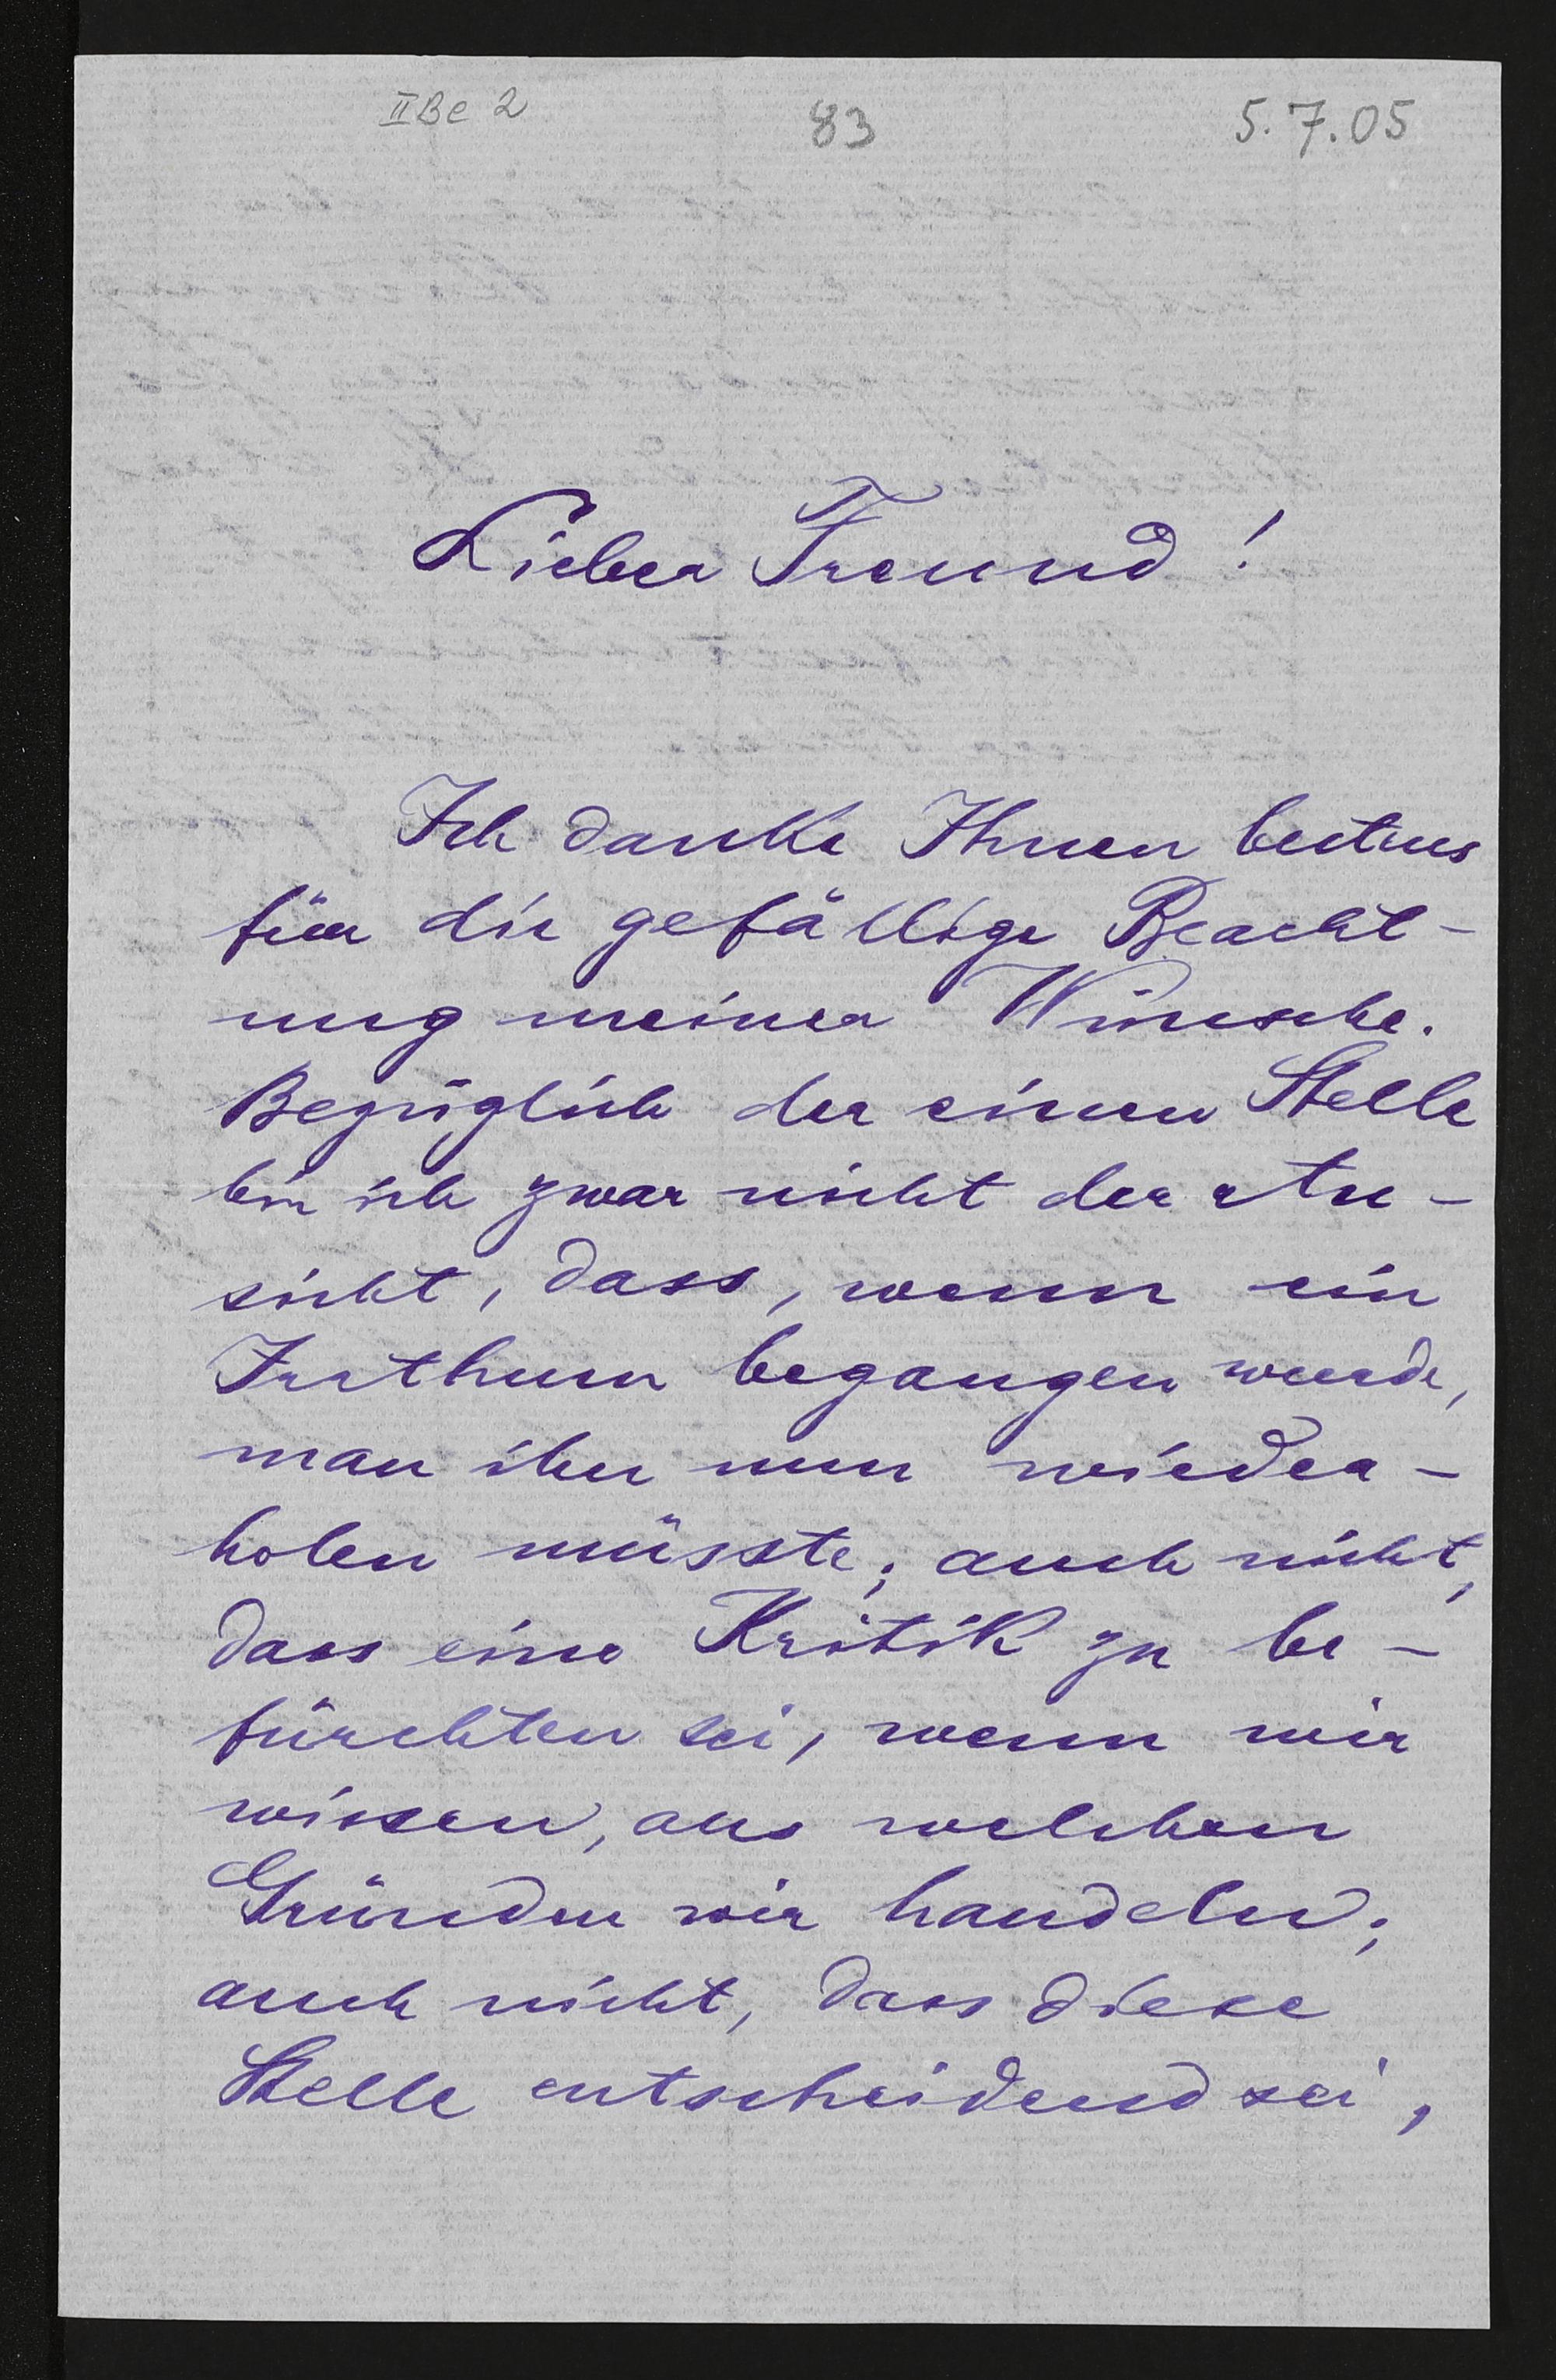 IIBe 2 83 5.7.05
Lieber Freund!
Ich danke Ihnen bestens
für die gefällige Beacht-
ung meiner Wünsche.
Bezüglich der einen Stelle
bin ich zwar nicht der An-
sicht, dass, wenn ein
Irrthum begangen wurde,
man ihn nun wieder-
holen müsste; auch nicht,
dass eine Kritik zu be-
fürchten sei, wenn wir
wissen, aus welchen
Gründen wir handeln;
auch nicht, dass diese
Stelle entscheidend sei,